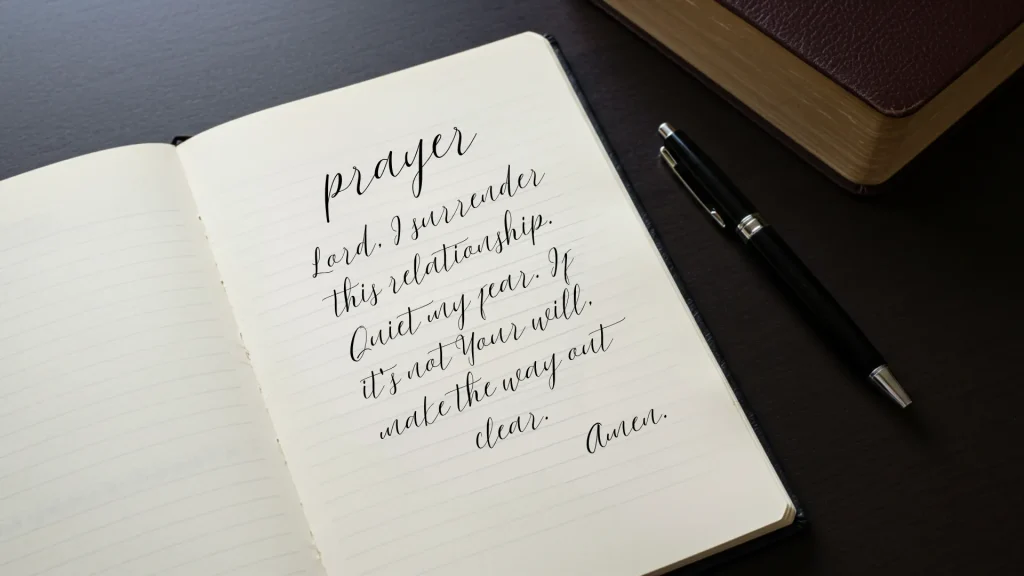 prayer
Lord, I surrender
this relationship.
Quiet my fear. If
it's not Your will,
make the way out
clear.
Amen.